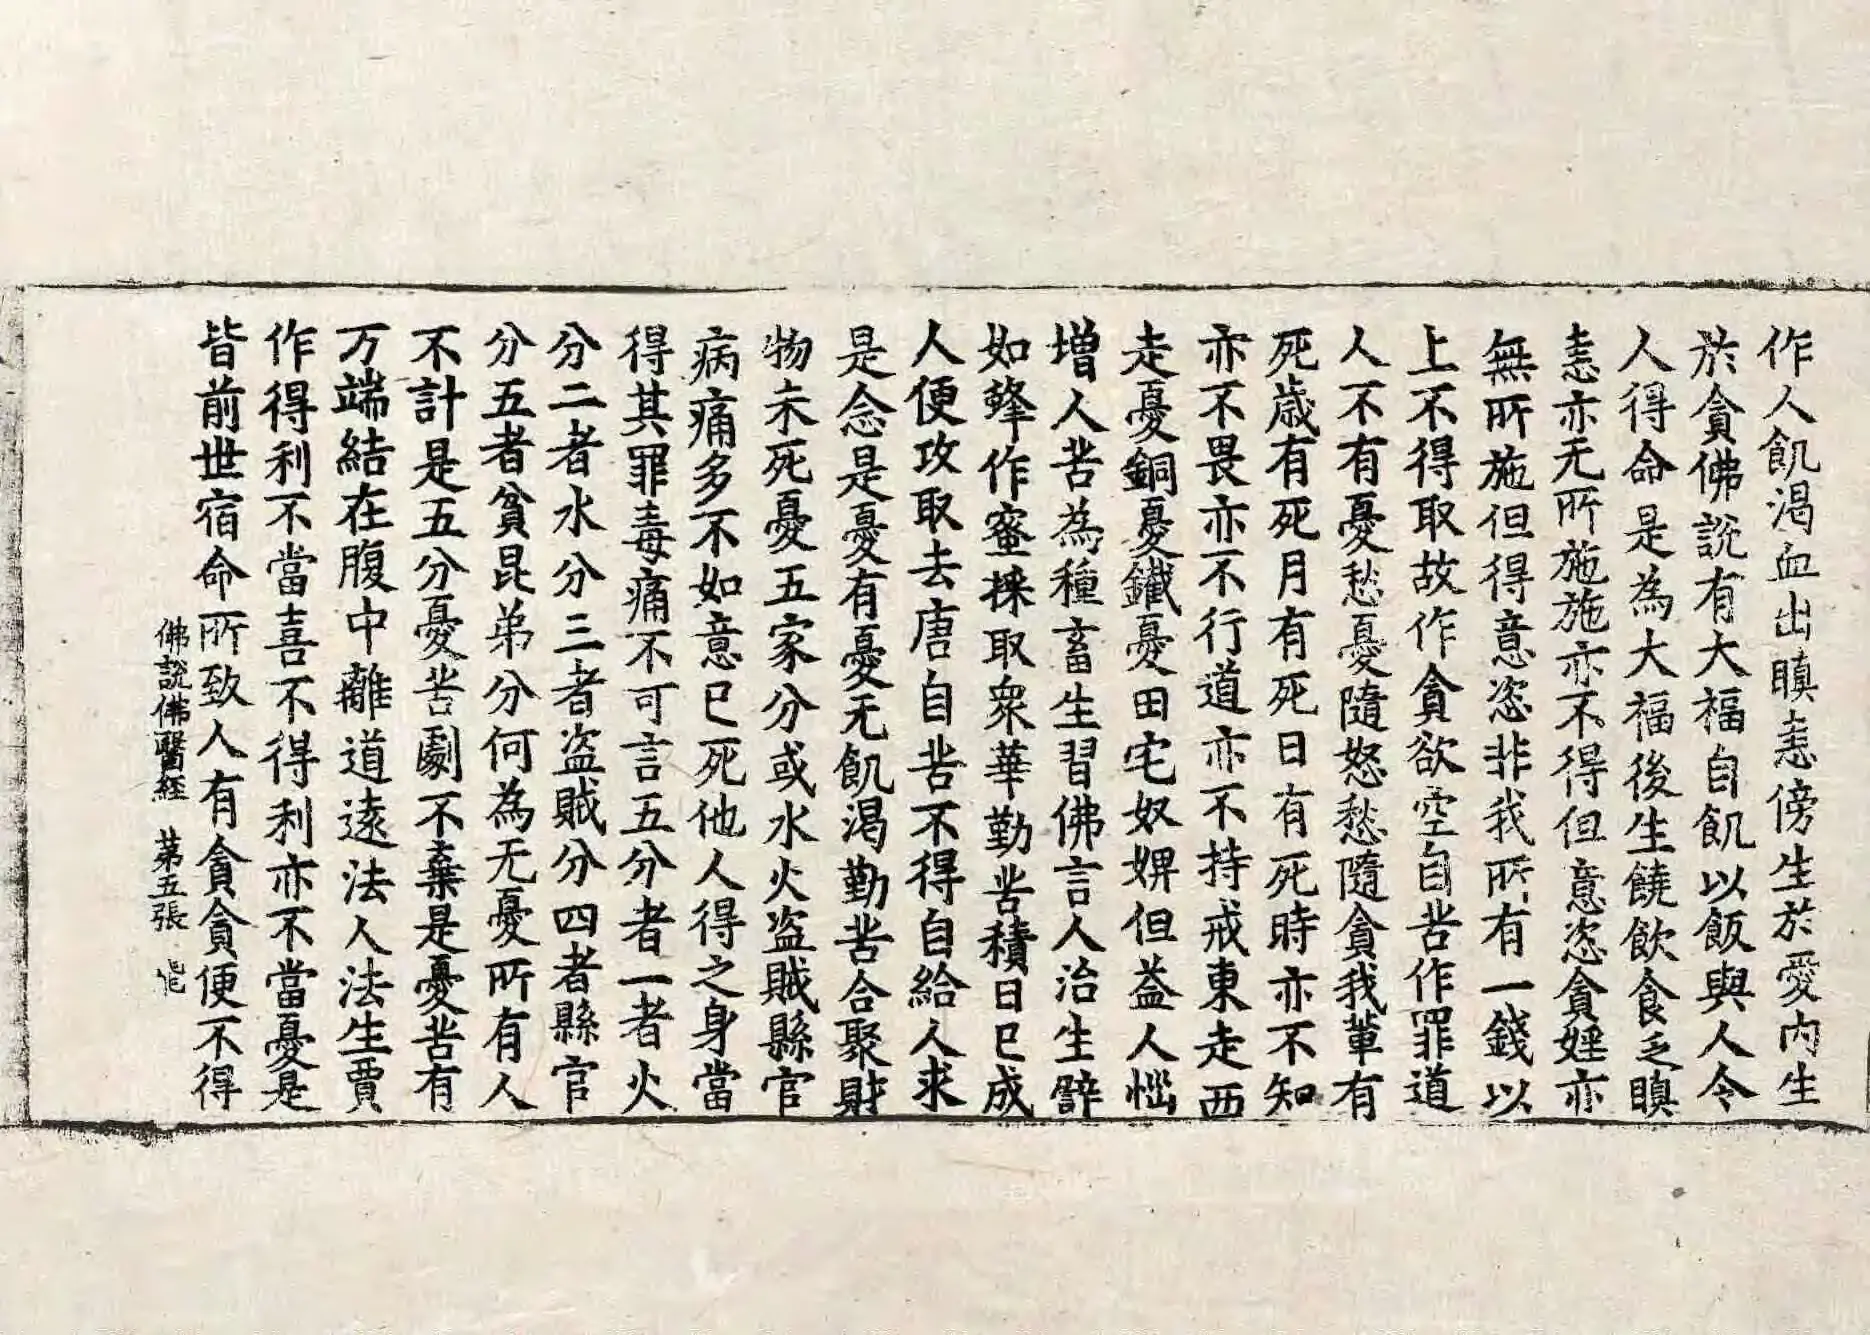 作人飢渴血出瞋恚傍生於愛內生
於貪佛說有大福自飢以飯與人令
人得命是為大福後生饒飲食乏瞋
恚亦无所施施亦不得但意恣貪婬亦
無所施但得意恣非我所有一錢以
上不得取故作貪欲空自苦作罪道
人不有憂愁憂隨怒愁隨貪我輩有
死歲有死月有死日有死時亦不知
亦不畏亦不行道亦不持戒東走西
走憂銅憂鐵憂田宅奴婢但益人惱
增人苦為種畜生習佛言人治生譬
如蜂作蜜採取眾華勤苦積日已成
人便攻取去唐自苦不得自給人求
是念是憂有憂无飢渴勤苦合聚財
物未死憂五家分或水火盜賊縣官
病痛多不如意已死他人得之身當
得其罪毒痛不可言五分者一者火
分二者水分三者盜賊分四者縣官
分五者貧昆弟分何為无憂所有人
不計是五分憂苦劇不棄是憂苦有
万端結在腹中離道遠法人法生賈
作得利不當喜不得利亦不當憂是
皆前世宿命所致人有貪貪便不得
佛說佛醫經 第五張 能